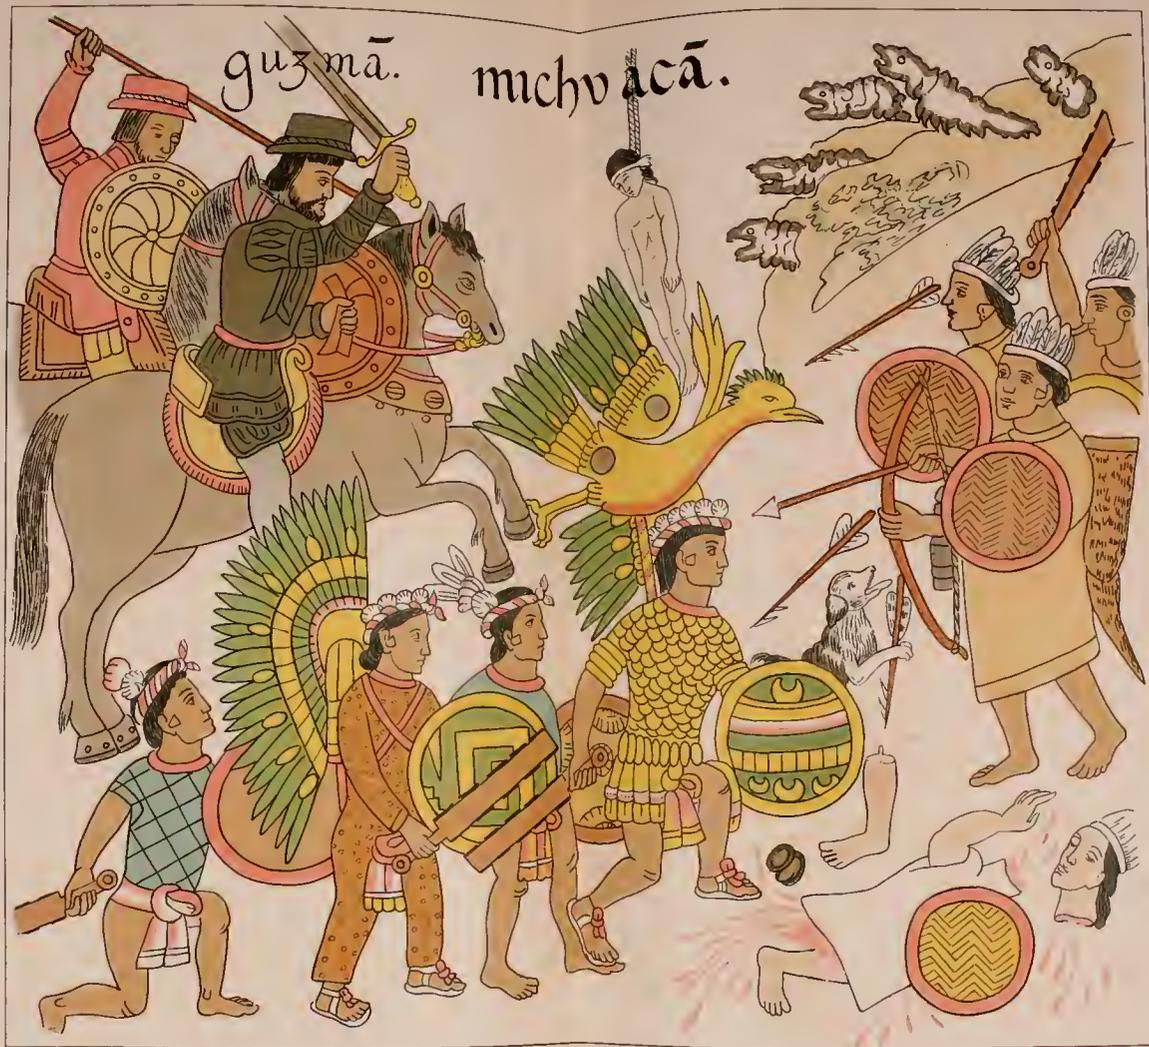 guzmā.
michvacā.